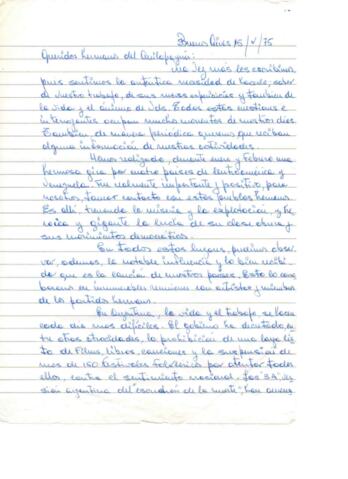 Buenos Aires 15/V/75
Queridos hermanos del Quilapayún:
Una vez más les escribimos,
pues sentimos la auténtica necesidad de hacerlo, saber
de vuestro trabajo, de sus nuevas experiencias y también de
la vida y el ánimo de Uds. Todas estas cuestiones e
interrogantes ocupan muchos momentos de nuestros días.
También de manera periódica queremos que reciban
alguna información de nuestras actividades.
Hemos realizado, durante enero y febrero una
hermosa gira por cuatro países de Centroamérica y
Venezuela. Fue realmente importante y positivo, para
nosotros, tomar contacto con estos pueblos hermanos.
Es allí, tremenda la miseria y la explotación, y he-
roica y gigante la lucha de su clase obrera y
sus movimientos democráticos.
En todos estos lugares, pudimos obser-
var, además, la notable influencia y lo bien recibi-
do que es la canción de nuestros países. Esto lo corro-
boramos en innumerables reuniones con artistas y miembros
de los partidos hermanos.
En Argentina, la vida y el trabajo se hacen
cada día más difíciles. El gobierno ha decretado, en-
tre otras atrocidades, la prohibición de una larga lis-
ta de films, libros, canciones y la suspensión de
más de 150 festivales folklóricos por atentar todos
ellos, contra el sentimiento nacional. Las "3A", ver-
sión argentina del "escuadrón de la muerte", han amena-